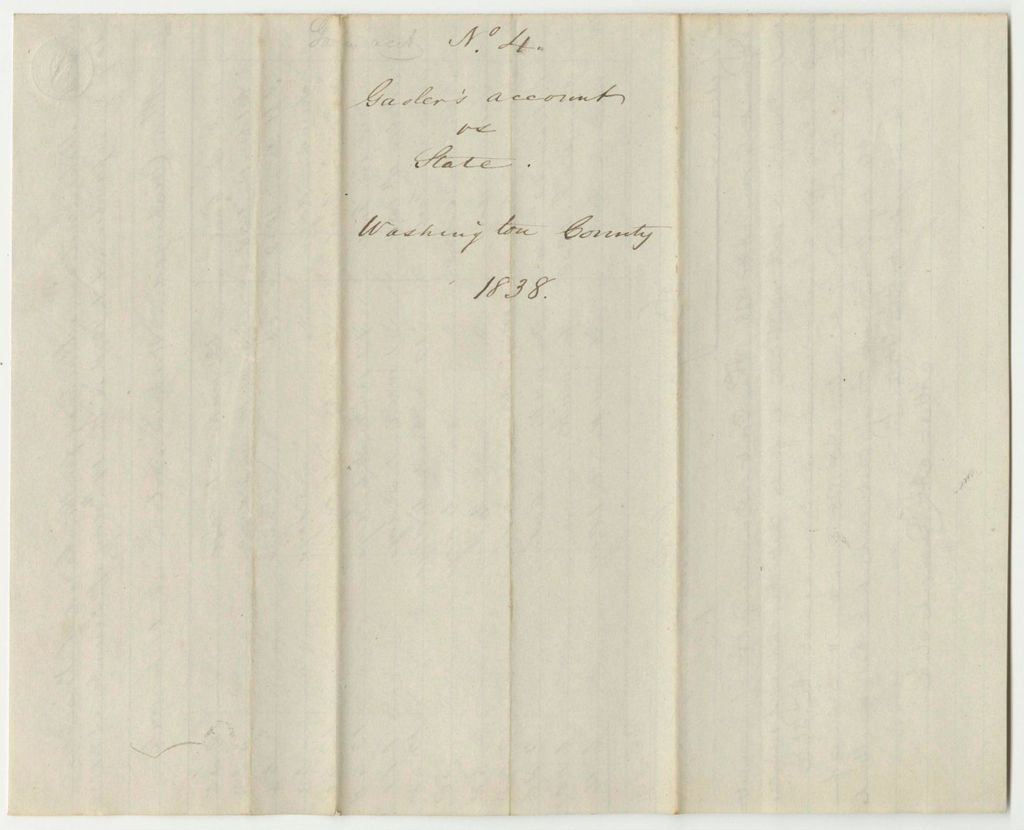 No. 4.
Gaoler's account
vs
State.
Washington County
1838.